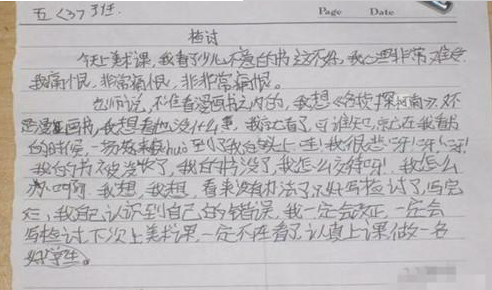 五〈3〉班 Page Date
检讨
今天上美术课,我看了少儿不宜的书这不好,我心理非常难受
我痛恨,非常痛恨,非非常痛恨。
老师说,不准看漫画书之内的,我想《名侦探柯南》又不
是漫画书,我想看也没什么,我就看了,可谁知,就在我看书
的时候,一场灾难hui到了我的头上 哇!我很些!呀!呀!呀!
我的书被没收了,我的书没了,我怎么这样呀!我怎么
办啊 我想,我想,看来没有办法了只好写检讨了,写完
后,我自己认识到自己的错误,我一定会改正,一定会
写检讨,下次上美术课,一定不在看了,认真上课,做一名
好学生。